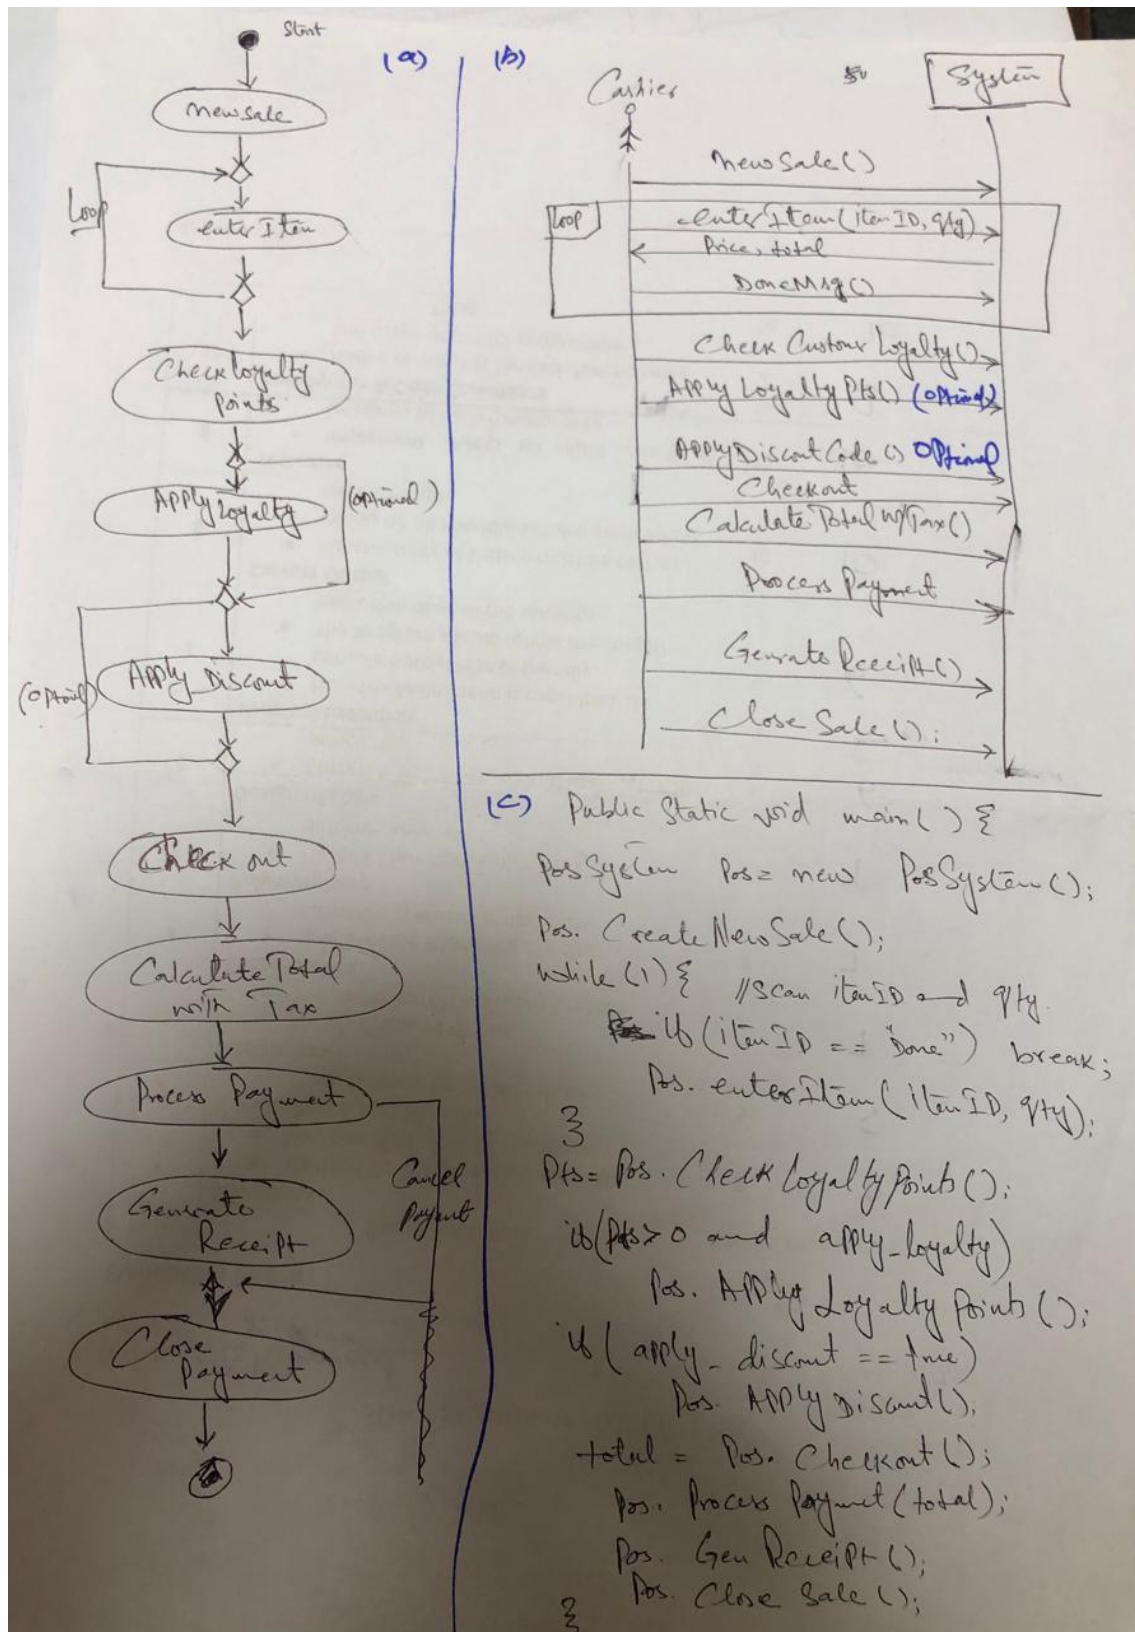 Start
(a)
new sale
Loop
enter Item
Check loyalty
points
Apply loyalty
(optional)
(optional)
Apply Discount
Check out
Calculate Total
with Tax
Process Payment
Cancel
Payment
Generate
Receipt
Close
Payment
(b)
Cashier
System
new Sale()
Loop
enter Item(itemID, qty)
Price, total
DoneMsg()
Check Customer Loyalty()
Apply Loyalty Pts() (optional)
Apply Discount Code() Optional
Checkout
Calculate Total w/Tax()
Process Payment
Generate Receipt()
Close Sale();
(c) Public Static void main() {
PosSystem Pos = new PosSystem();
Pos. Create New Sale();
while (1) { //Scan itemID and qty.
if (itemID == "Done") break;
Pos. enterItem(itemID, qty);
}
Pts = Pos. Check loyalty Points();
if (Pts > 0 and apply_loyalty)
Pos. Apply Loyalty Points();
if (apply_discount == true)
Pos. Apply Discount();
total = Pos. Checkout();
Pos. Process Payment(total);
Pos. Gen Receipt();
Pos. Close Sale();
}